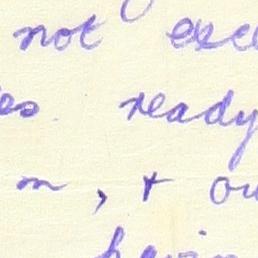 not exc
es ready
m, + ou